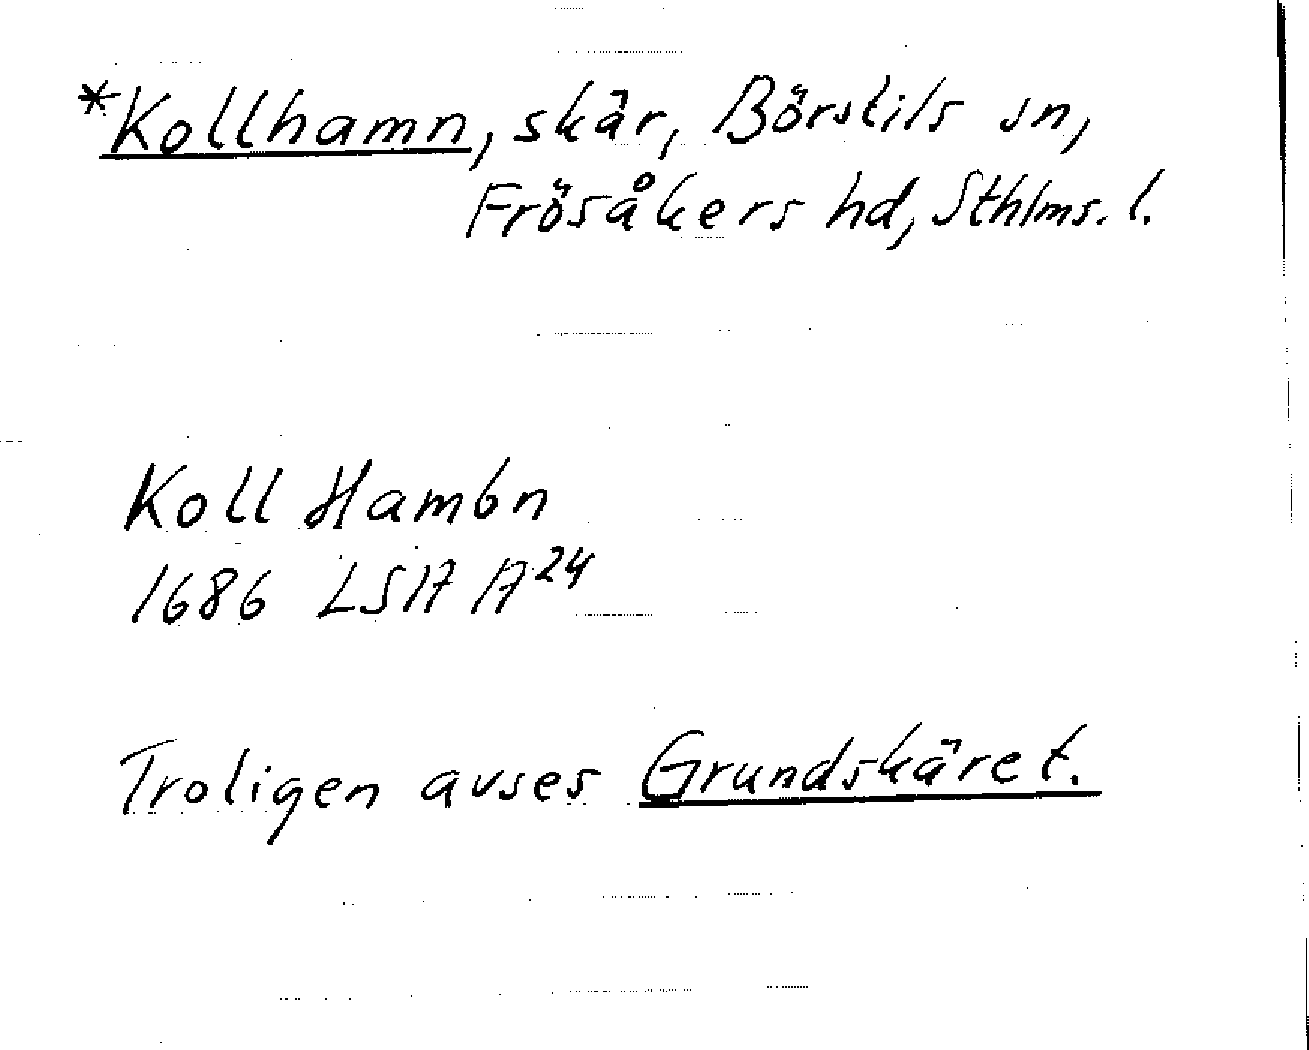 *Kollhamn, skär, Börstils sn,
Frösåkers hd, Sthlms. l.
Koll Hambn
1686 LSA A24
Troligen avses Grundskäret.